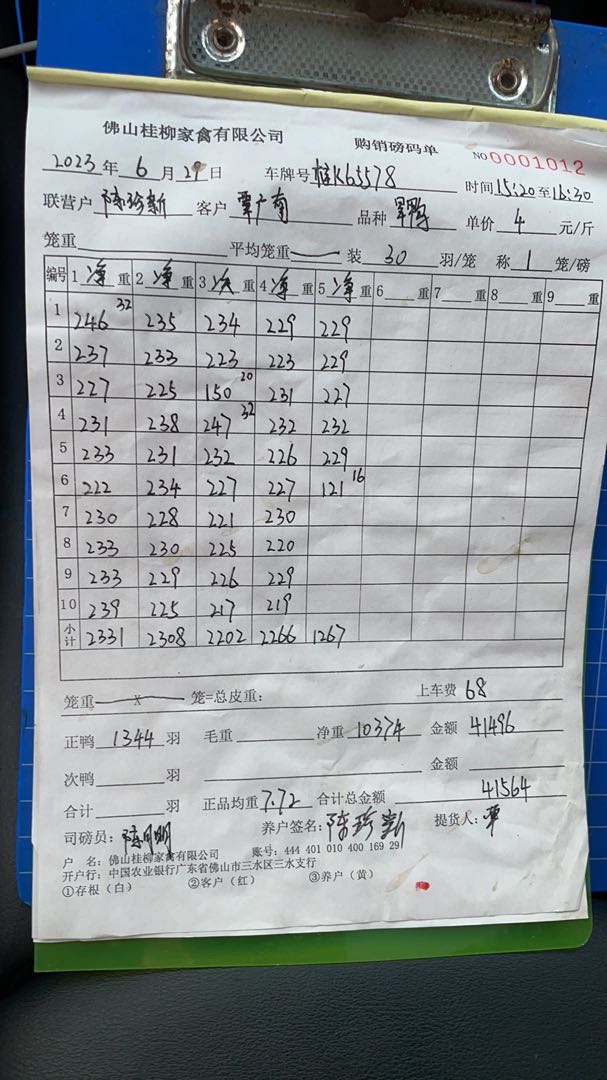 佛山桂柳家禽有限公司 购销磅码单 NO 0001012
2023 年 6 月 29 日 车牌号 桂K65578 时间 15:20 至 16:30
联营户 陈珍新 客户 覃广南 品种 旱鸭 单价 4 元/斤
笼重 平均笼重 装 30 羽/笼 称 1 笼/磅
编号 1 净 重 2 净 重 3 重 4 净 重 5 净 重 6 重 7 重 8 重 9 重
1 246 32 235 234 229 229
2 237 233 223 223 229
3 227 225 150 20 231 227
4 231 238 247 32 232 232
5 233 231 232 226 229
6 222 234 227 227 121 16
7 230 228 221 230
8 233 230 225 220
9 233 229 226 229
10 239 225 217 219
小计 2331 2308 2202 2266 1267
笼重 x 笼=总皮重: 上车费 68
正鸭 1344 羽 毛重 净重 10374 金额 41496
次鸭 羽 金额
合计 羽 正品均重 7.72 合计总金额 41564
司磅员: 养户签名: 陈珍新 提货人: 覃
户 名: 佛山桂柳家禽有限公司 账号: 444 401 010 400 169 29
开户行: 中国农业银行广东省佛山市三水区三水支行
①存根(白) ②客户(红) ③养户(黄)